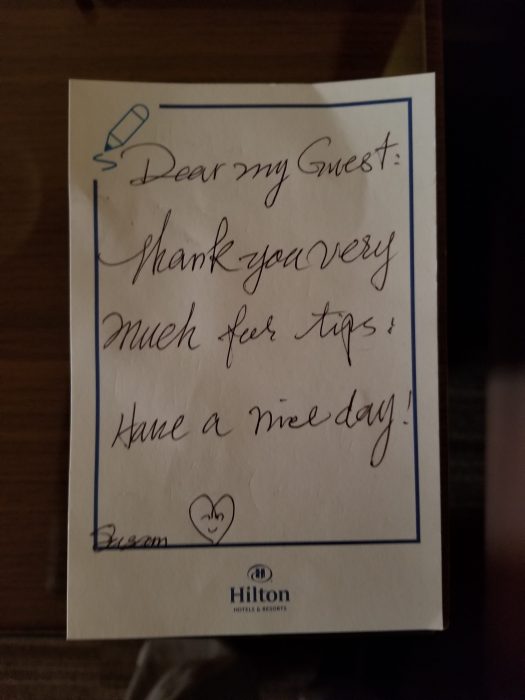 Dear my Guest:
Thank you very
much for tips:
Have a nice day!
Susan
Hilton
HOTELS & RESORTS